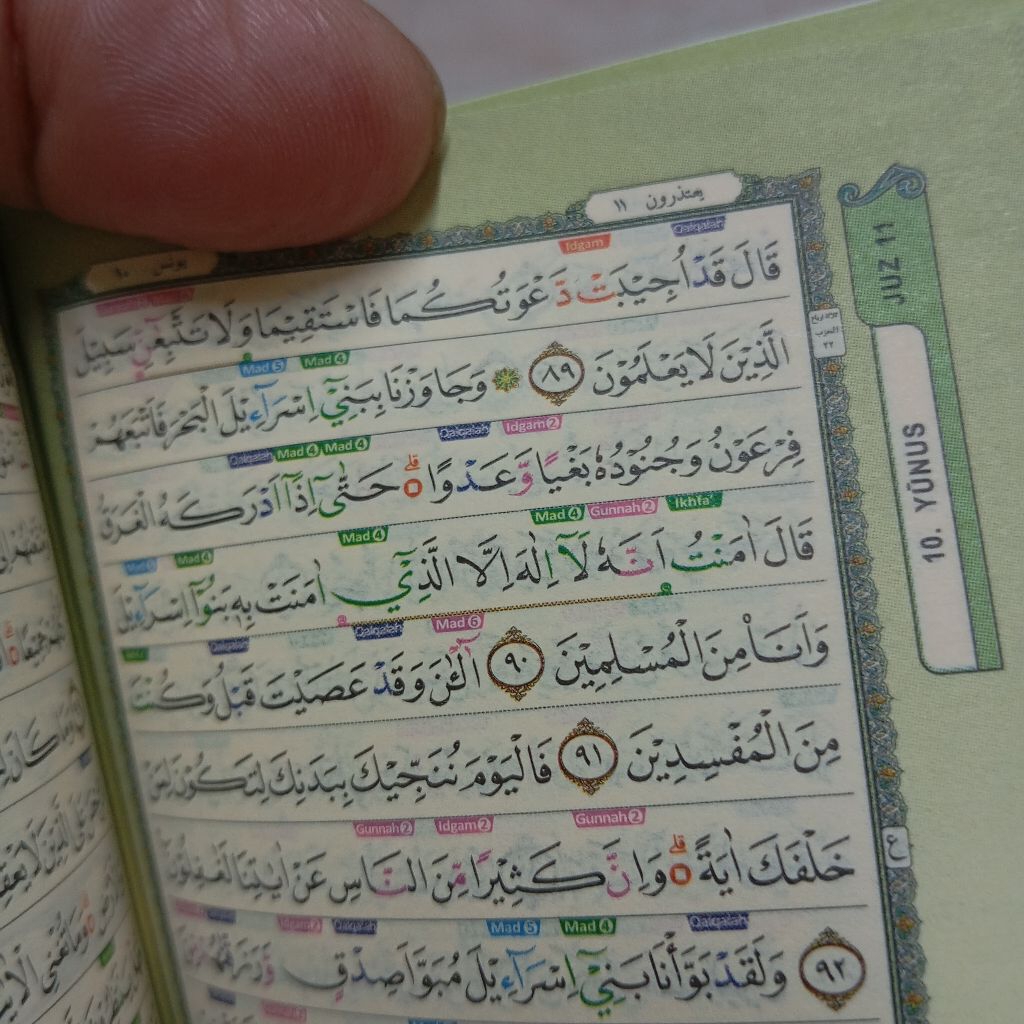 يعتذرون ١١
يونس ١٠
JUZ 11
10. YŪNUS
Idgam Qalqalah
قَالَ قَدْ اُجِيْبَتْ دَّعْوَتُكُمَا فَاسْتَقِيْمَا وَلَا تَتَّبِعٰۤنِّ سَبِيْلَ
Mad 5 Mad 4
الَّذِيْنَ لَا يَعْلَمُوْنَ ٨٩ ۞ وَجَاوَزْنَا بِبَنِيْٓ اِسْرَاۤءِيْلَ الْبَحْرَ فَاَتْبَعَهُمْ
Qalqalah Mad 4 Mad 4 Qalqalah Idgam 2
فِرْعَوْنُ وَجُنُوْدُهٗ بَغْيًا وَّعَدْوًاۗ حَتّٰىٓ اِذَآ اَدْرَكَهُ الْغَرَقُ
Mad 4 Mad 4 Mad 4 Gunnah 2 Ikhfa'
قَالَ اٰمَنْتُ اَنَّهٗ لَآ اِلٰهَ اِلَّا الَّذِيْٓ اٰمَنَتْ بِهٖ بَنُوْٓا اِسْرَاۤءِيْلَ
Qalqalah Qalqalah Mad 6
وَاَنَا۠ مِنَ الْمُسْلِمِيْنَ ٩٠ اٰۤلْـٰٔنَ وَقَدْ عَصَيْتَ قَبْلُ وَكُنْتَ
مِنَ الْمُفْسِدِيْنَ ٩١ فَالْيَوْمَ نُنَجِّيْكَ بِبَدَنِكَ لِتَكُوْنَ لِمَنْ
Gunnah 2 Idgam 2 Gunnah 2
خَلْفَكَ اٰيَةًۗ وَاِنَّ كَثِيْرًا مِّنَ النَّاسِ عَنْ اٰيٰتِنَا لَغٰفِلُوْنَ
Qalqalah Mad 5 Mad 4 Qalqalah
٩٢ وَلَقَدْ بَوَّأْنَا بَنِيْٓ اِسْرَاۤءِيْلَ مُبَوَّاَ صِدْقٍ وَّرَزَقْنٰهُمْ